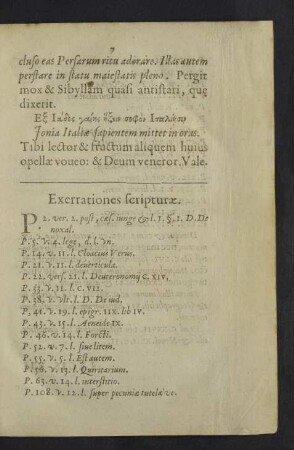 7
cluso eas Persarum ritu adorare. Illas autem
perstare in statu maiestatis pleno. Pergit
mox & Sibyllam quasi antistari, quę
dixerit.
Εξ Ιαδος γαίης ἥξει σοφὸν
Ionia Italiæ sapientem mittet in oras.
Tibi lector & fructum aliquem huius
opellæ voueo: & Deum veneror. Vale.
Exerrationes scripturæ.
P. 2. ver. 2. post, cæs. iunge & l. 1. §. 1. D. De
noxal.
P. 5. v. 4. lege, d. l. vn.
P. 14. v. 11. l. Cloacius Verus.
P. 21. v. 11. l. deuerticula.
P. 22. vers. 21. l. Deuteronomij c. XIV,
P. 33. v. 21. l. c. VII.
P. 38, v. vlt. l. D. De iud.
P. 41. v. 19. l. epigr. IIX. lib IV.
P. 43. v. 15. l. Aeneide IX.
P. 46. v. 14. l. Forcti.
P. 52. v. 7. l. siue litem.
P. 55. v. 5. l. Est autem.
P. 56. v. 13. l. Quiritarium.
P. 63. v. 14. l. interstitin.
P. 108. v. 12. l. super pecuniæ tutelæ ve.